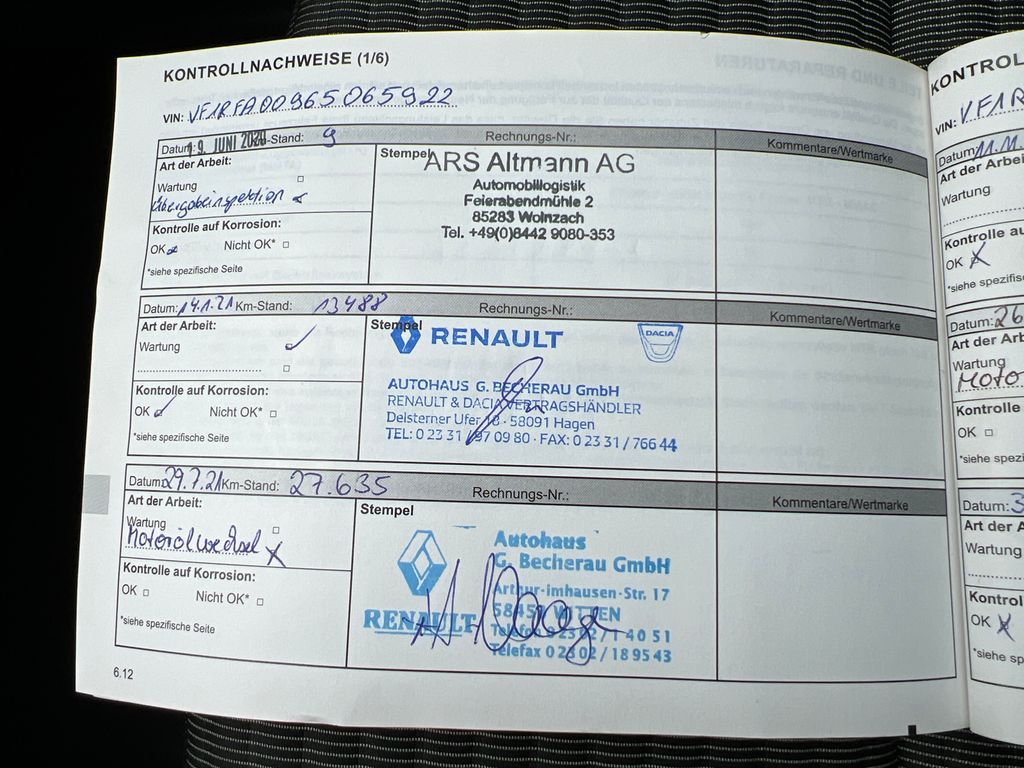 KONTROLLNACHWEISE (1/6)
VIN: VF1RFA00965065922
Datum: 19. JUNI 2020 -Stand: 9 Rechnungs-Nr.: Kommentare/Wertmarke
Art der Arbeit:
Wartung
Übergabeinspektion
Kontrolle auf Korrosion:
OK Nicht OK*
*siehe spezifische Seite
Stempel
ARS Altmann AG
Automobillogistik
Feierabendmühle 2
85283 Wolnzach
Tel. +49(0)8442 9080-353
Datum: 14.1.21 Km-Stand: 13488 Rechnungs-Nr.: Kommentare/Wertmarke
Art der Arbeit:
Wartung
Kontrolle auf Korrosion:
OK Nicht OK*
*siehe spezifische Seite
Stempel
RENAULT DACIA
AUTOHAUS G. BECHERAU GmbH
RENAULT & DACIA VERTRAGSHÄNDLER
Delsterner Ufer 18 · 58091 Hagen
TEL: 0 23 31 / 97 09 80 · FAX: 0 23 31 / 766 44
Datum: 29.7.21 Km-Stand: 27.635 Rechnungs-Nr.: Kommentare/Wertmarke
Art der Arbeit:
Wartung
Motorölwechsel X
Kontrolle auf Korrosion:
OK Nicht OK*
*siehe spezifische Seite
Stempel
RENAULT
Autohaus
G. Becherau GmbH
Arthur-Imhausen-Str. 17
58453 WITTEN
Telefon 0 23 02 / 1 40 51
Telefax 0 23 02 / 18 95 43
6.12
KONTROL
VIN: VF1
Datum: 11.11.
Art der Arbei
Wartung
Kontrolle au
OK X
*siehe spezi
Datum: 26
Art der Arb
Wartung
Moto
Kontrolle
OK
*siehe spez
Datum: 3
Art der A
Wartung
Kontrol
OK X
*siehe sp